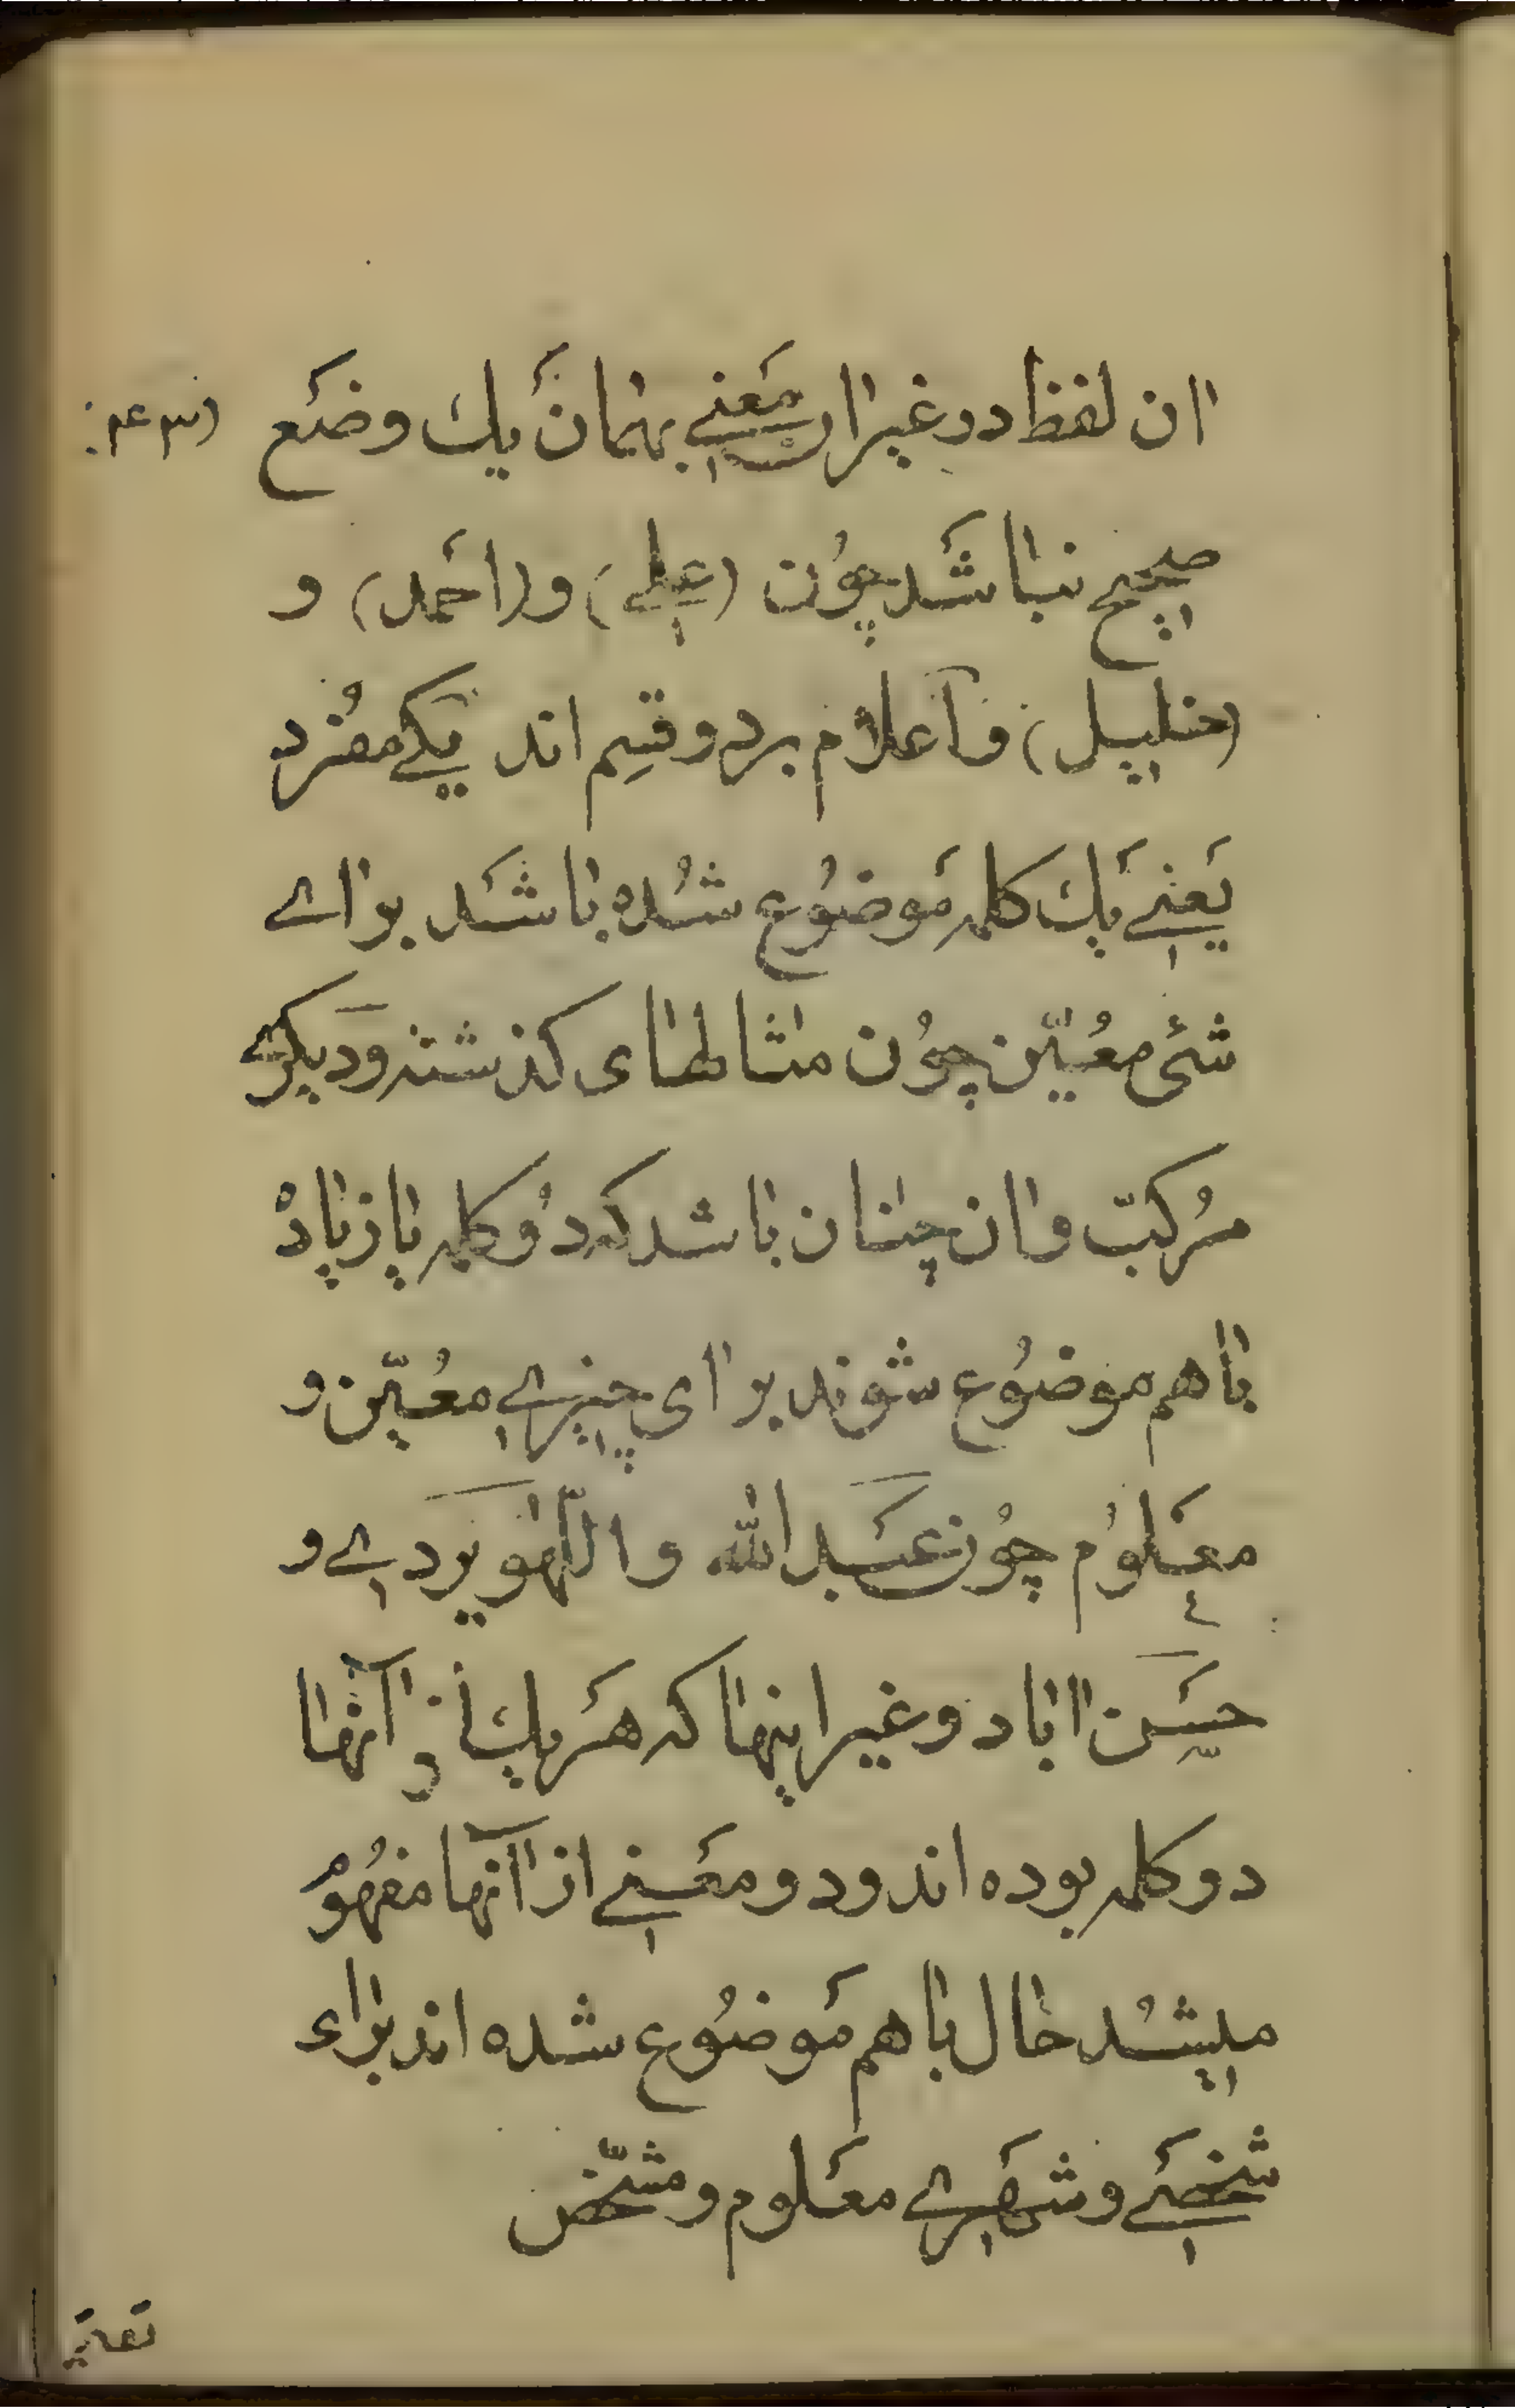 اان لفظ در غیر اان معنے بهمان یك وضَع
صحیح نباشَد چوُن (علے) و (احَمد) و
(خلیل) و اَعلام بر دو قسِم اند یکے مفُرد
یَعنے یَك کلمه مَوضوُع شُده باشَد براے
شئ معُیّن چوُن مثالهای کذشته و دَیکرے
مرُکبّ و اان چنان باشد که دُو کلمه یا زیادْ
با هم موضوُع شوند برای چیزے معُیّن و
معَلوُم چوُن عبَد الله و اللّهوَیردے و
حسَن ااباد و غیر اینها که هَر یك از اآنها
دو کلمه بوده اند و دو معَنے از اآنها مفهُومْ
میشُد حال با هم مَوضوُع شده اند برای
شخصَے و شهَرے معَلوم و مشّخص